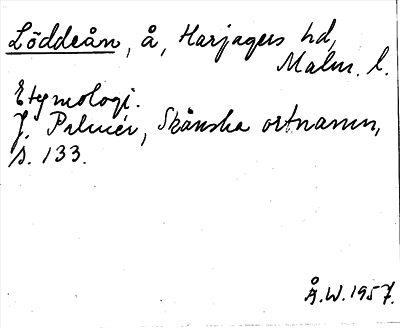 Löddeån, å, Harjagers hd,
Malm. l.
Etymologi.
J. Palmér, Skånska ortnamn,
s. 133.
Å.W.1957.